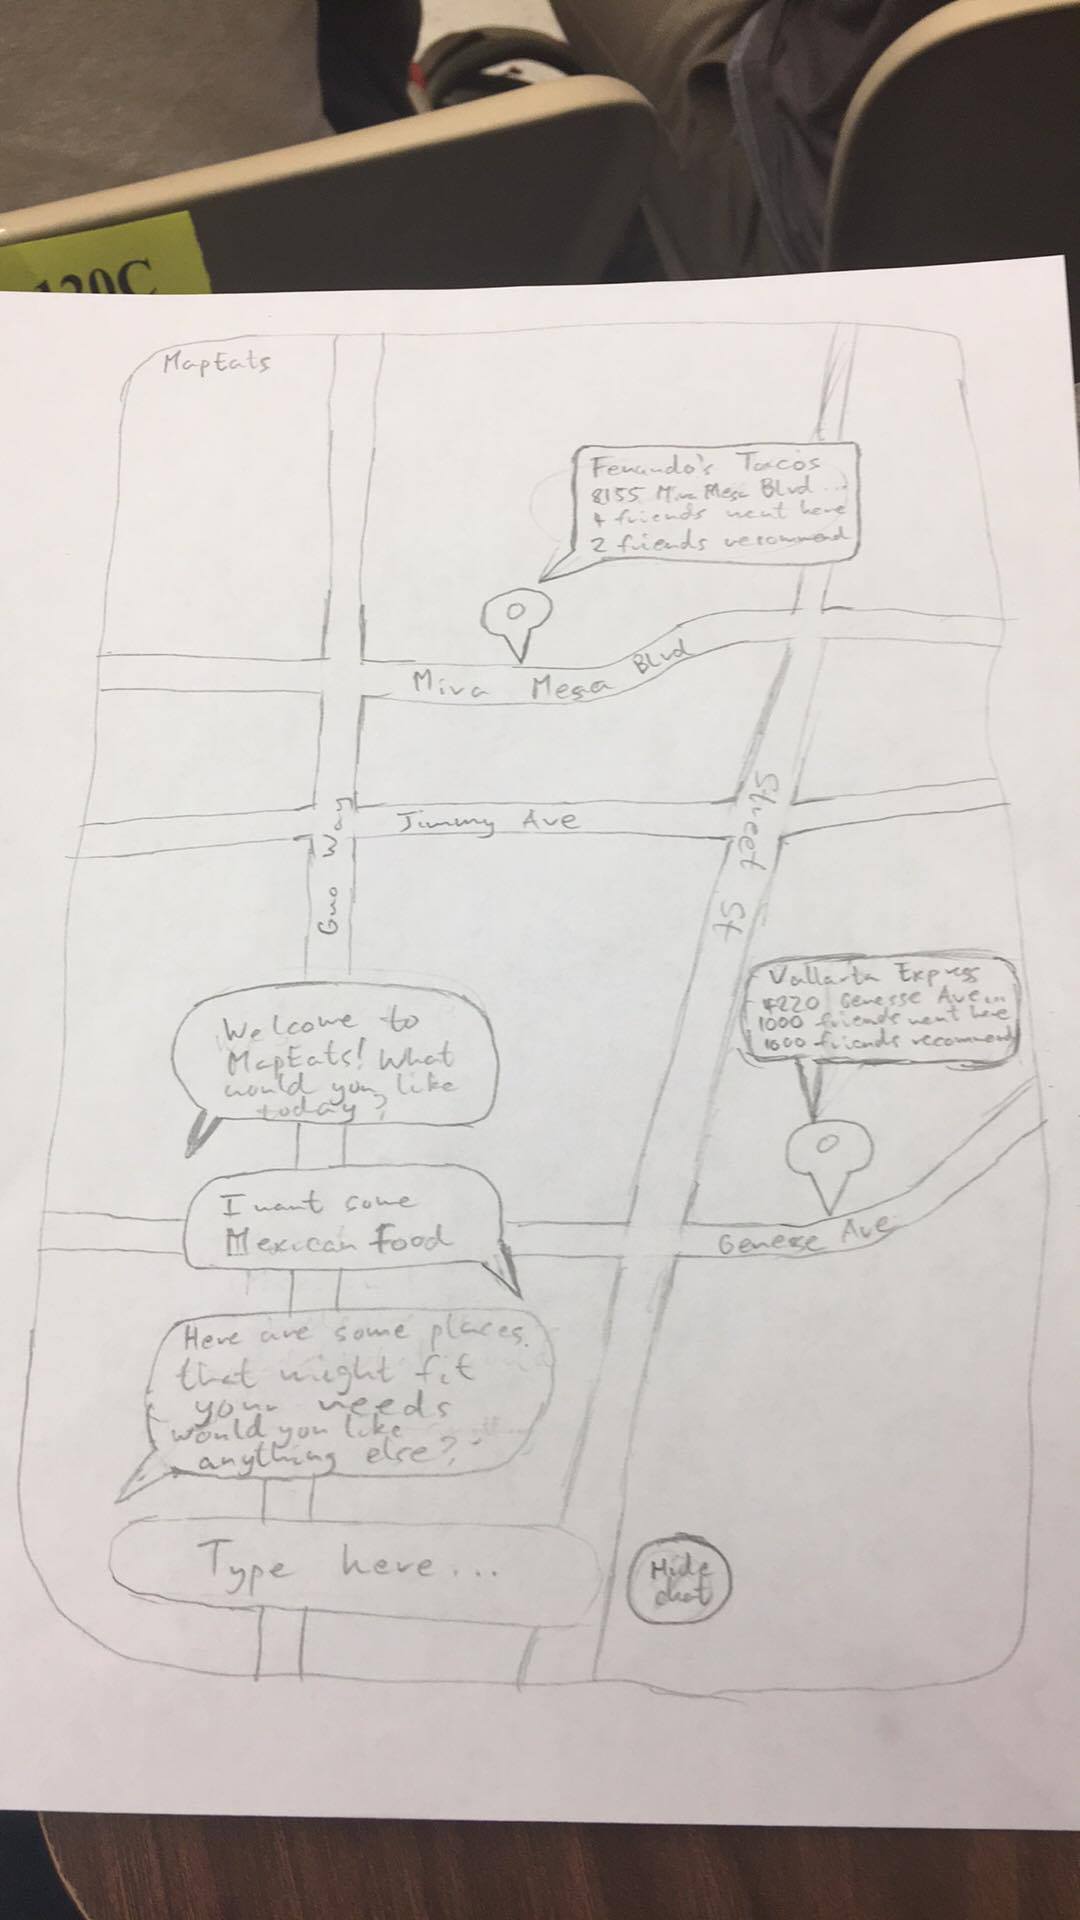 120C
MapEats
Fernando's Tacos
8155 Mira Mesa Blvd...
4 friends went here
2 friends recommend
Mira Mesa Blvd
Street St
Jimmy Ave
Guo Way
Vallarta Express
4220 Genesse Ave...
1000 friends went here
1000 friends recommend
Welcome to
MapEats! What
would you like
today?
I want some
Mexican Food
Genesse Ave
Here are some places
that might fit
your needs
would you like
anything else?
Type here...
Hide
chat